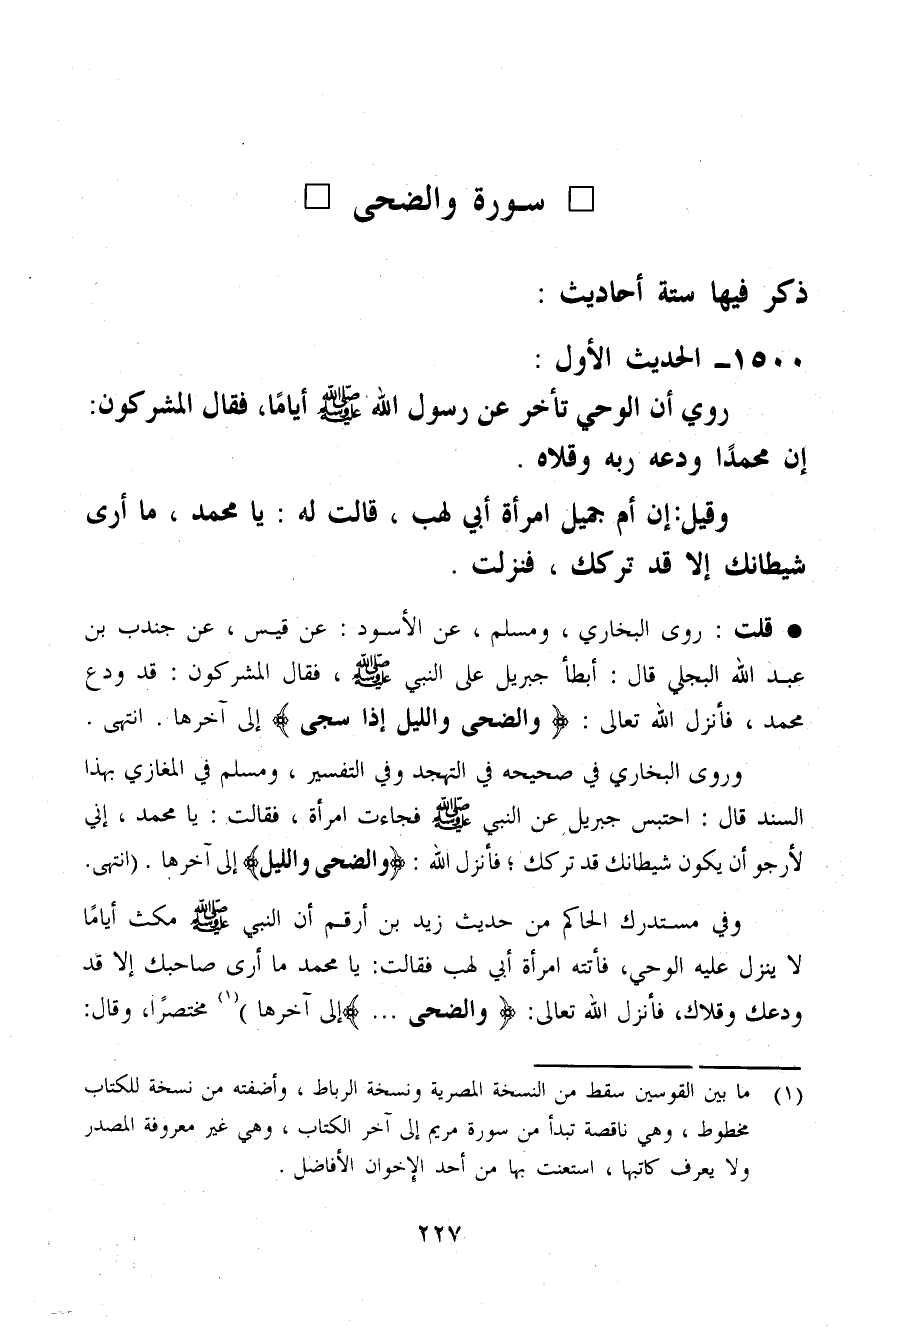 □ سورة والضحى □
ذكر فيها ستة أحاديث :
١٥٠٠ـ الحديث الأول :
روي أن الوحي تأخر عن رسول الله ﷺ أيامًا، فقال المشركون:
إن محمدًا ودعه ربه وقلاه .
وقيل:إن أم جميل امرأة أبي لهب ، قالت له : يا محمد ، ما أرى
شيطانك إلا قد تركك ، فنزلت .
● قلت : روى البخاري ، ومسلم ، عن الأسود : عن قيس ، عن جندب بن
عبد الله البجلي قال : أبطأ جبريل على النبي ﷺ ، فقال المشركون : قد ودع
محمد ، فأنزل الله تعالى : ﴿ والضحى والليل إذا سجى ﴾ إلى آخرها . انتهى .
وروى البخاري في صحيحه في التهجد وفي التفسير ، ومسلم في المغازي بهذا
السند قال : احتبس جبريل عن النبي ﷺ فجاءت امرأة ، فقالت : يا محمد ، إني
لأرجو أن يكون شيطانك قد تركك ؛ فأنزل الله : ﴿والضحى والليل﴾ إلى آخرها . (انتهى.
وفي مستدرك الحاكم من حديث زيد بن أرقم أن النبي ﷺ مكث أيامًا
لا ينزل عليه الوحي، فأتته امرأة أبي لهب فقالت: يا محمد ما أرى صاحبك إلا قد
ودعك وقلاك، فأنزل الله تعالى: ﴿ والضحى ... ﴾إلى آخرها )(١) مختصرًا، وقال:
(١) ما بين القوسين سقط من النسخة المصرية ونسخة الرباط ، وأضفته من نسخة للكتاب
مخطوط ، وهي ناقصة تبدأ من سورة مريم إلى آخر الكتاب ، وهي غير معروفة المصدر
ولا يعرف كاتبها ، استعنت بها من أحد الإخوان الأفاضل .
٢٢٧